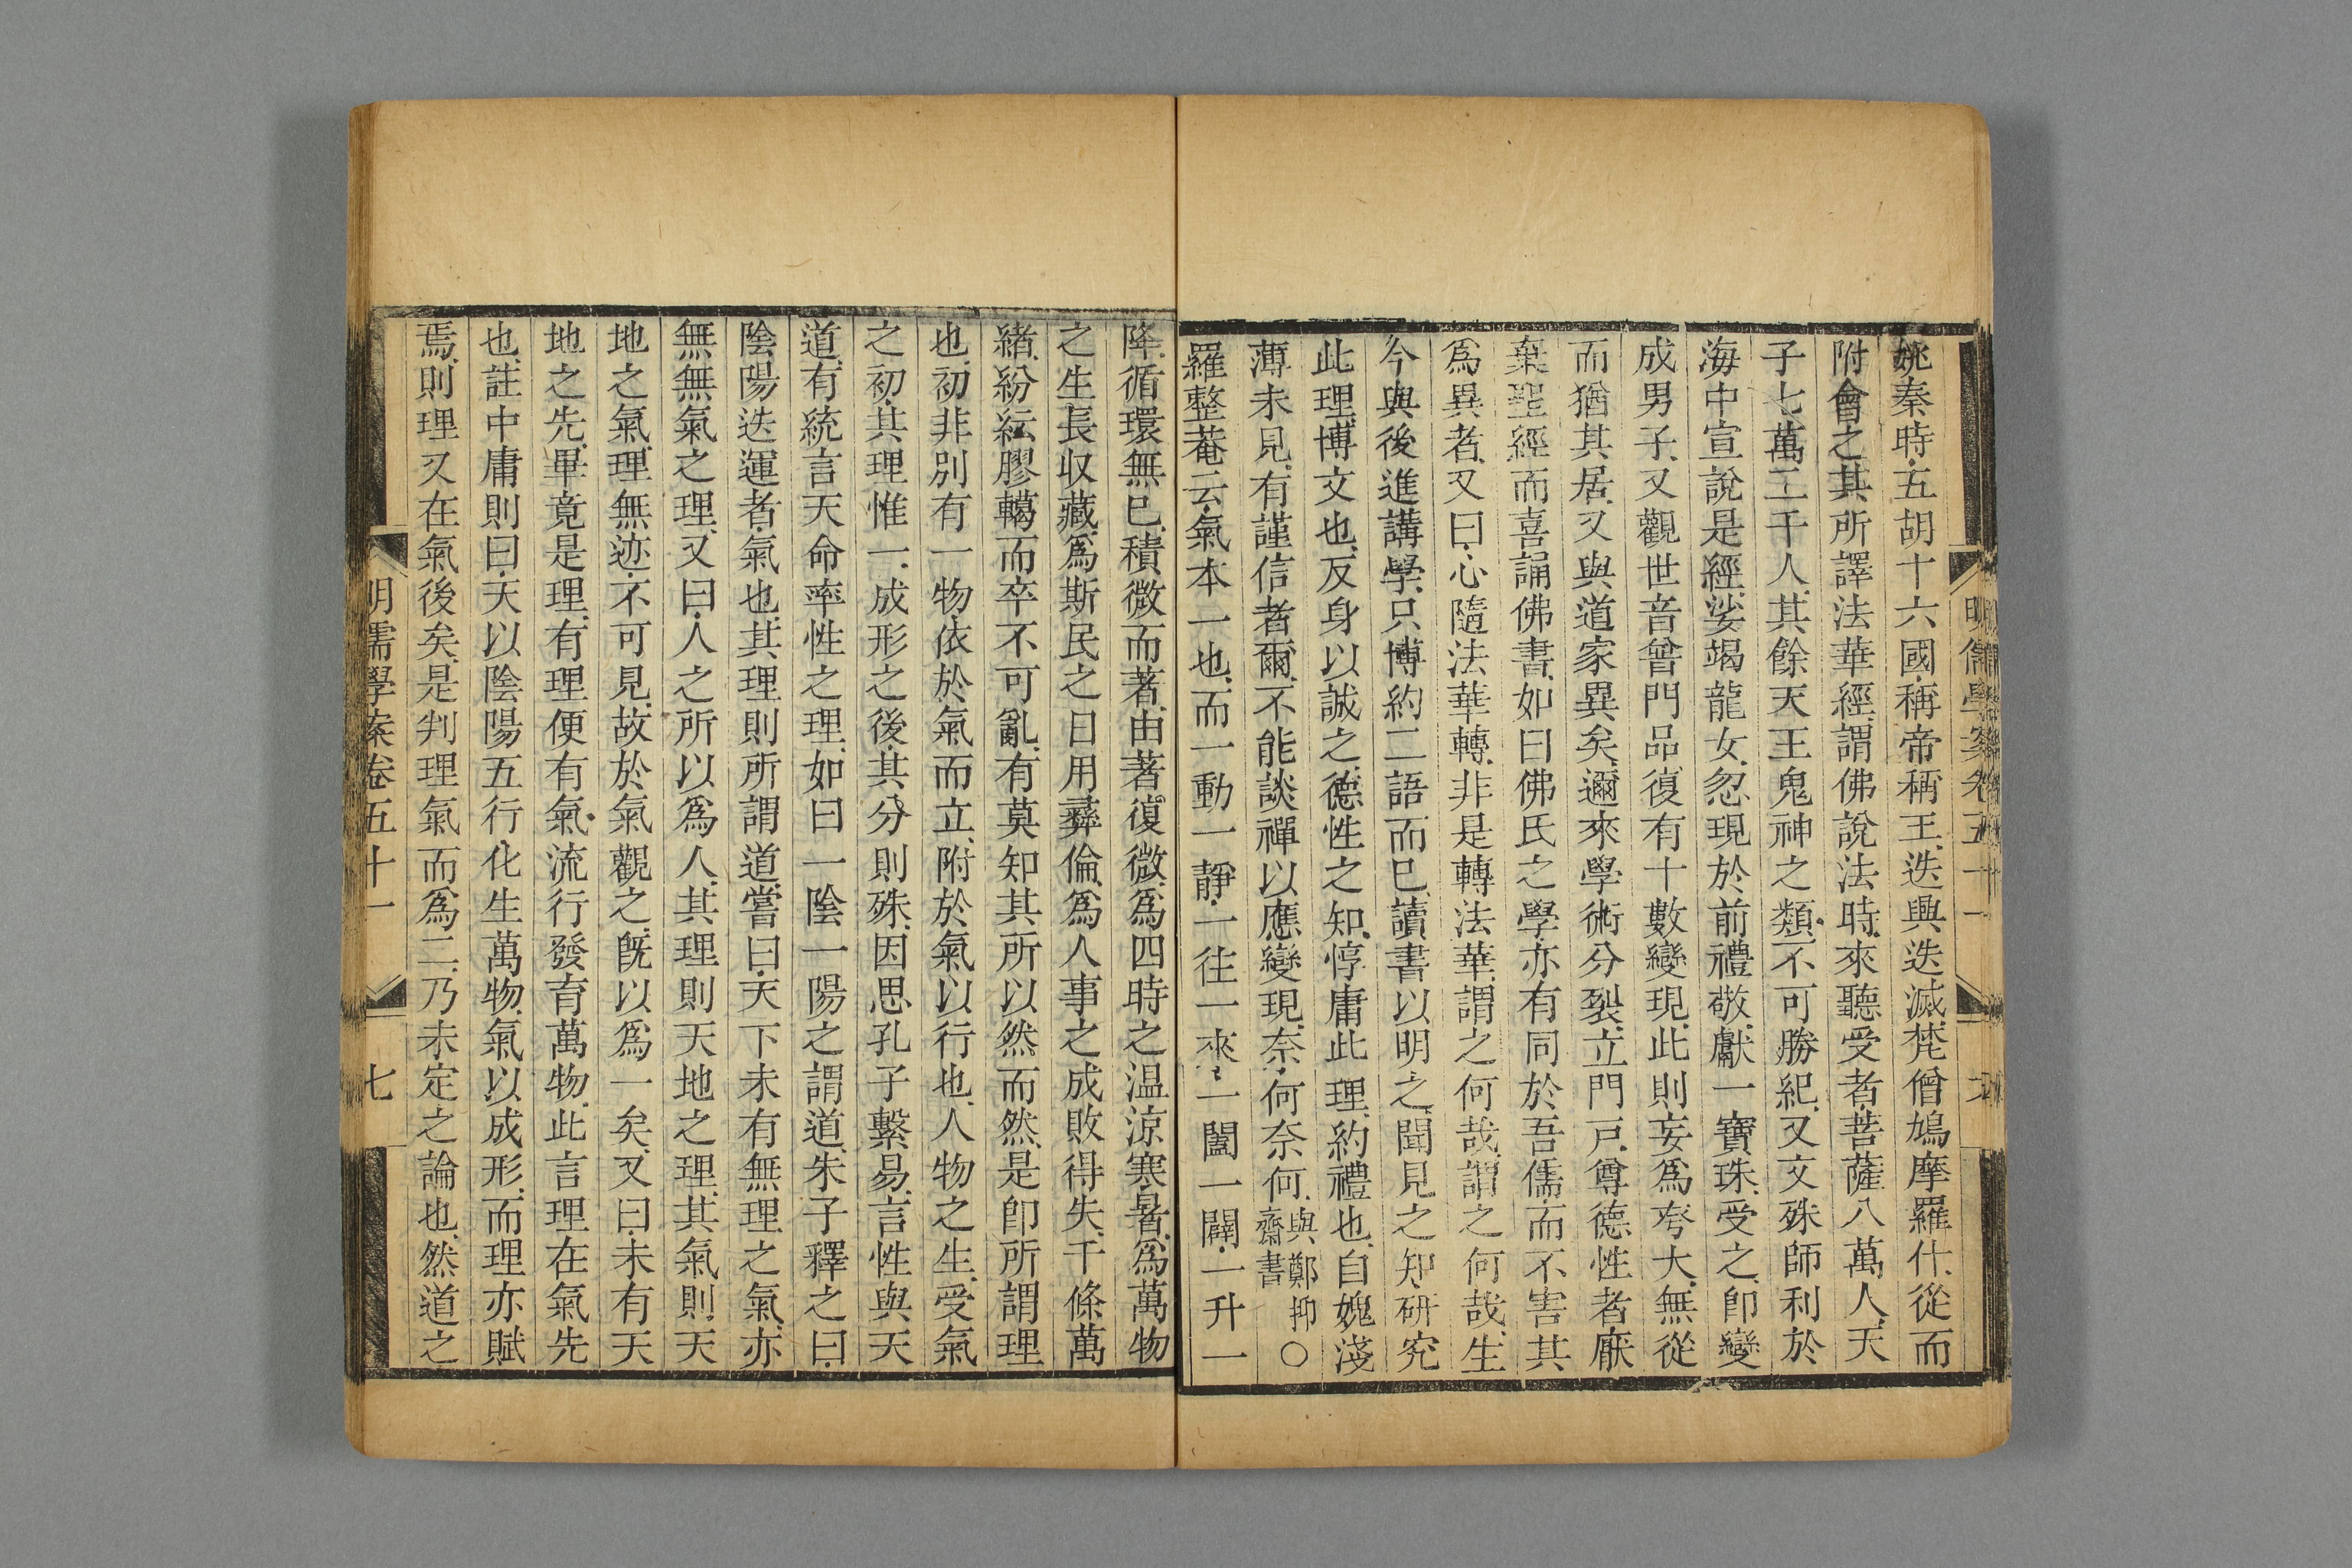 姚秦時五胡十六國稱帝稱王迭興迭滅梵僧鳩摩羅什從而
附會之其所譯法華經謂佛說法時來聽受者菩薩八萬人天
子七萬二千人其餘天王鬼神之類不可勝紀又文殊師利於
海中宣說是經娑竭龍女忽現於前禮敬獻一寶珠受之卽變
成男子又觀世音曾門品復有十數變現此則妄爲夸大無從
而猶其居又與道家異矣邇來學術分裂立門戸尊德性者厭
棄聖經而喜誦佛書如曰佛氏之學亦有同於吾儒而不害其
爲異者又曰心隨法華轉非是轉法華謂之何哉謂之何哉生
今與後進講學只博約二語而已讀書以明之聞見之知研究
此理博文也反身以誠之德性之知惇庸此理約禮也自媿淺
薄未見有謹信者爾不能談禪以應變現奈何奈何與鄭抑齋書○
羅整菴云氣本一也而一動一靜一往一來一闔一闢一升一
降循環無已積微而著由著復微爲四時之温涼寒暑爲萬物
之生長収藏爲斯民之日用彝倫爲人事之成敗得失千條萬
緒紛紜膠轕而卒不可亂有莫知其所以然而然是卽所謂理
也初非別有一物依於氣而立附於氣以行也人物之生受氣
之初其理惟一成形之後其分則殊因思孔子繫易言性與天
道有統言天命率性之理如曰一陰一陽之謂道朱子釋之曰
陰陽迭運者氣也其理則所謂道嘗曰天下未有無理之氣亦
無無氣之理又曰人之所以爲人其理則天地之理其氣則天
地之氣理無迹不可見故於氣觀之旣以爲一矣又曰未有天
地之先畢竟是理有理便有氣流行發育萬物此言理在氣先
也註中庸則曰天以陰陽五行化生萬物氣以成形而理亦賦
焉則理又在氣後矣是判理氣而爲二乃未定之論也然道之
明儒學案卷五十一
七